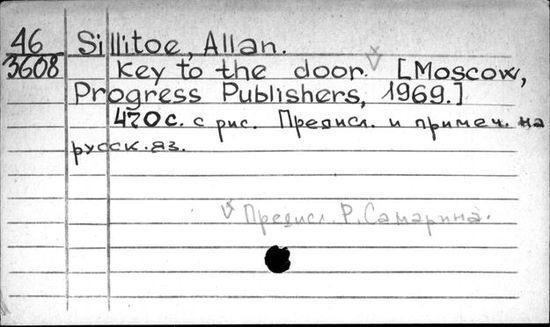 46 Sillitoe, Allan.
3608 Key to the door. [Moscow,
Progress Publishers, 1969.]
470 с. с рис. Предисл. и примеч. на
русск. яз.
Предисл. Р. Самарина.